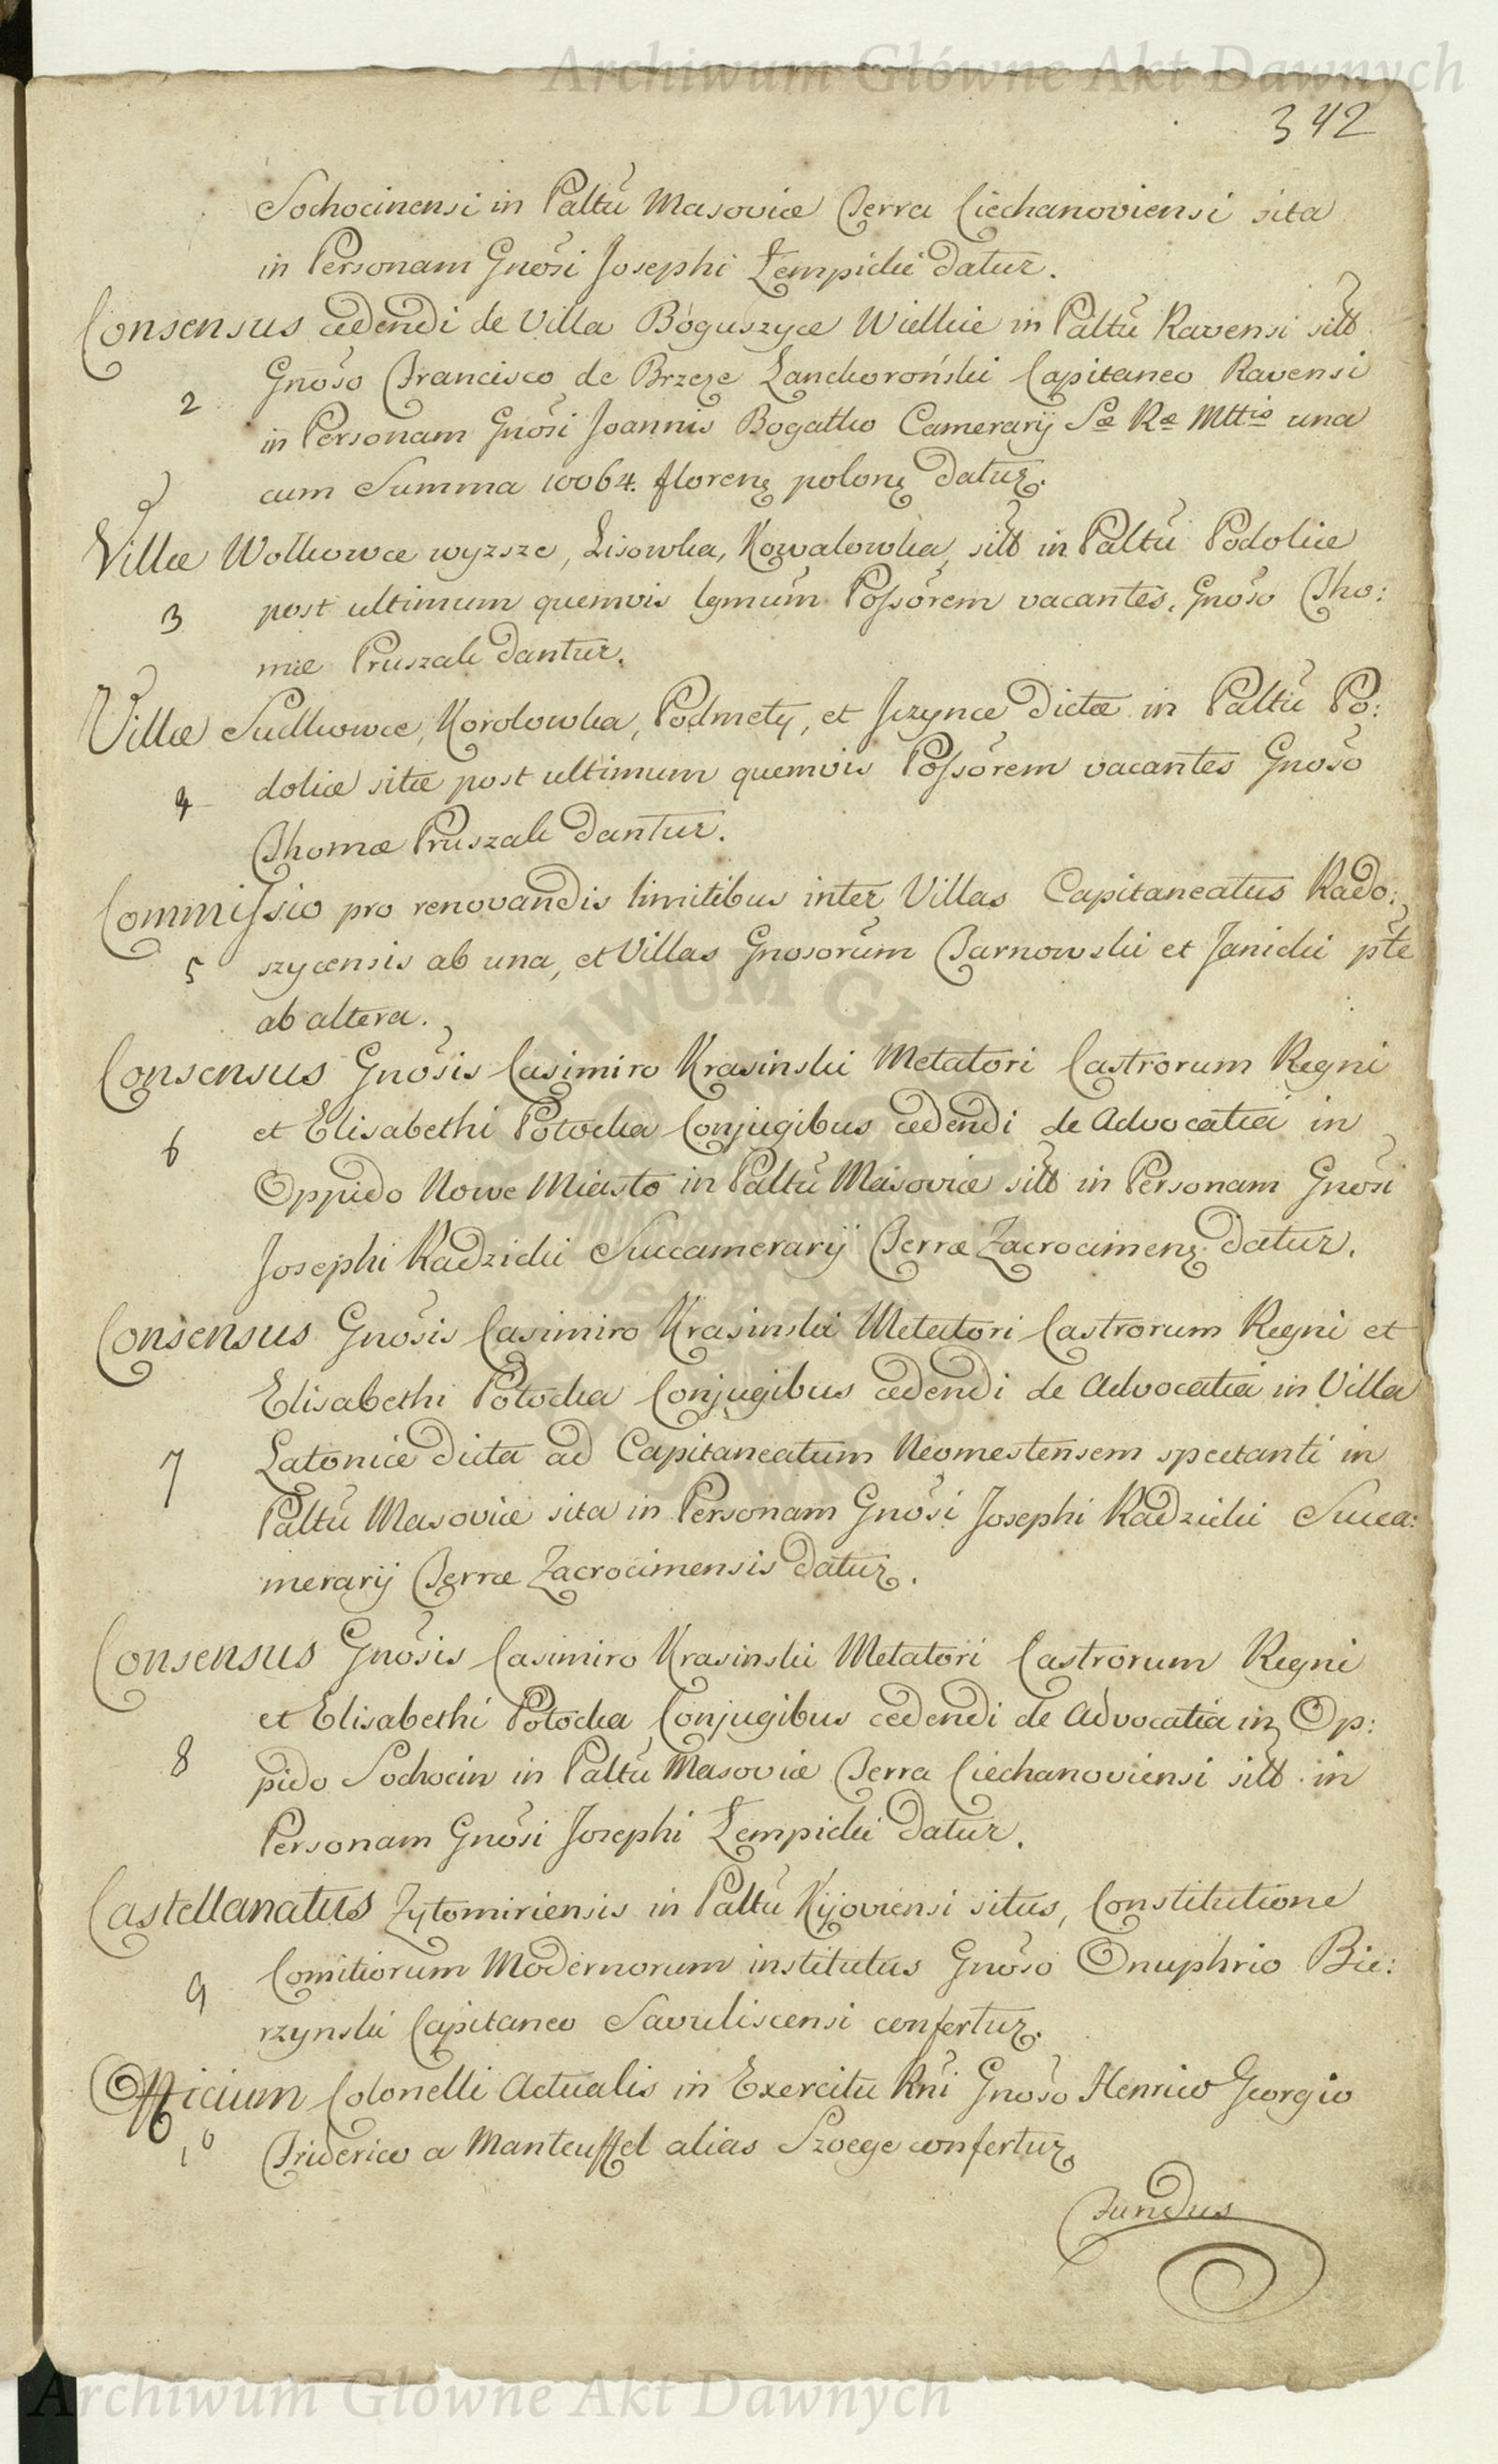 Archiwum Główne Akt Dawnych
342
Sochocinensi in Paltũ Masoviæ Terra Ciechanoviensi sita
in Personam Gnõsi Josephi Łempicki datur.
Consensus cedendi de Villa Boguszyce Wielkie in Paltũ Ravensi sitt
Gnõso Francisco de Brzeze Lanckoroński Capitaneo Ravensi
2
in Personam Gnõsi Joannis Bogatko Camerarij Sæ Ræ Mttis una
cum Summa 10064. florenꝫ polonꝫ datur.
Villæ Wołkowce wyzsze, Lisowka, Kowalowka, sitt in Paltũ Podoliæ
3 post ultimum quemvis lgmũm Possõrem vacantes, Gnõso Tho:
mæ Pruszak dantur.
Villæ Sudkowce, Korolowka, Podmety, et Jrzynce dictæ in Paltũ Po:
4 doliæ sitæ post ultimum quemvis Possõrem vacantes Gnõso
Thomæ Pruszak dantur.
Commissio pro renovandis limitibus inter Villas Capitaneatus Rado:
5 szycensis ab una, et Villas Gnosorũm Tarnowski et Janicki pte
ab altera.
Consensus Gnõsis Casimiro Krasinski Metatori Castrorum Regni
6 et Elisabethi Potocka Conjugibus cedendi de Advocatia in
Oppido Nowe Miasto in Paltũ Masoviæ sitt in Personam Gnõsi
Josephi Radzicki Succamerarij Terræ Zacrocimenꝫ datur.
Consensus Gnõsis Casimiro Krasinski Metatori Castrorum Regni et
Elisabethi Potocka Conjugibus cedendi de Advocatia in Villa
7 Latonice dicta ad Capitaneatum Neomestensem spectanti in
Paltũ Masoviæ sita in Personam Gnõsi Josephi Radzicki Succa:
merarij Terræ Zacrocimensis datur.
Consensus Gnõsis Casimiro Krasinski Metatori Castrorum Regni
et Elisabethi Potocka Conjugibus cedendi de Advocatia in Op:
8 pido Sochocin in Paltũ Masoviæ Terra Ciechanoviensi sitt in
Personam Gnõsi Josephi Łempicki datur.
Castellanatus Zytomiriensis in Paltũ Kijoviensi situs, Constitutione
9 Comitiorum Modernorum institutus Gnõso Onuphrio Bie:
rzynski Capitaneo Savuliscensi confertur.
Officium Colonelli Actualis in Exercitu Rni Gnõso Henrico Georgio
10 Friderico a Manteuffel alias Szoege confertur.
Fundus
Archiwum Główne Akt Dawnych